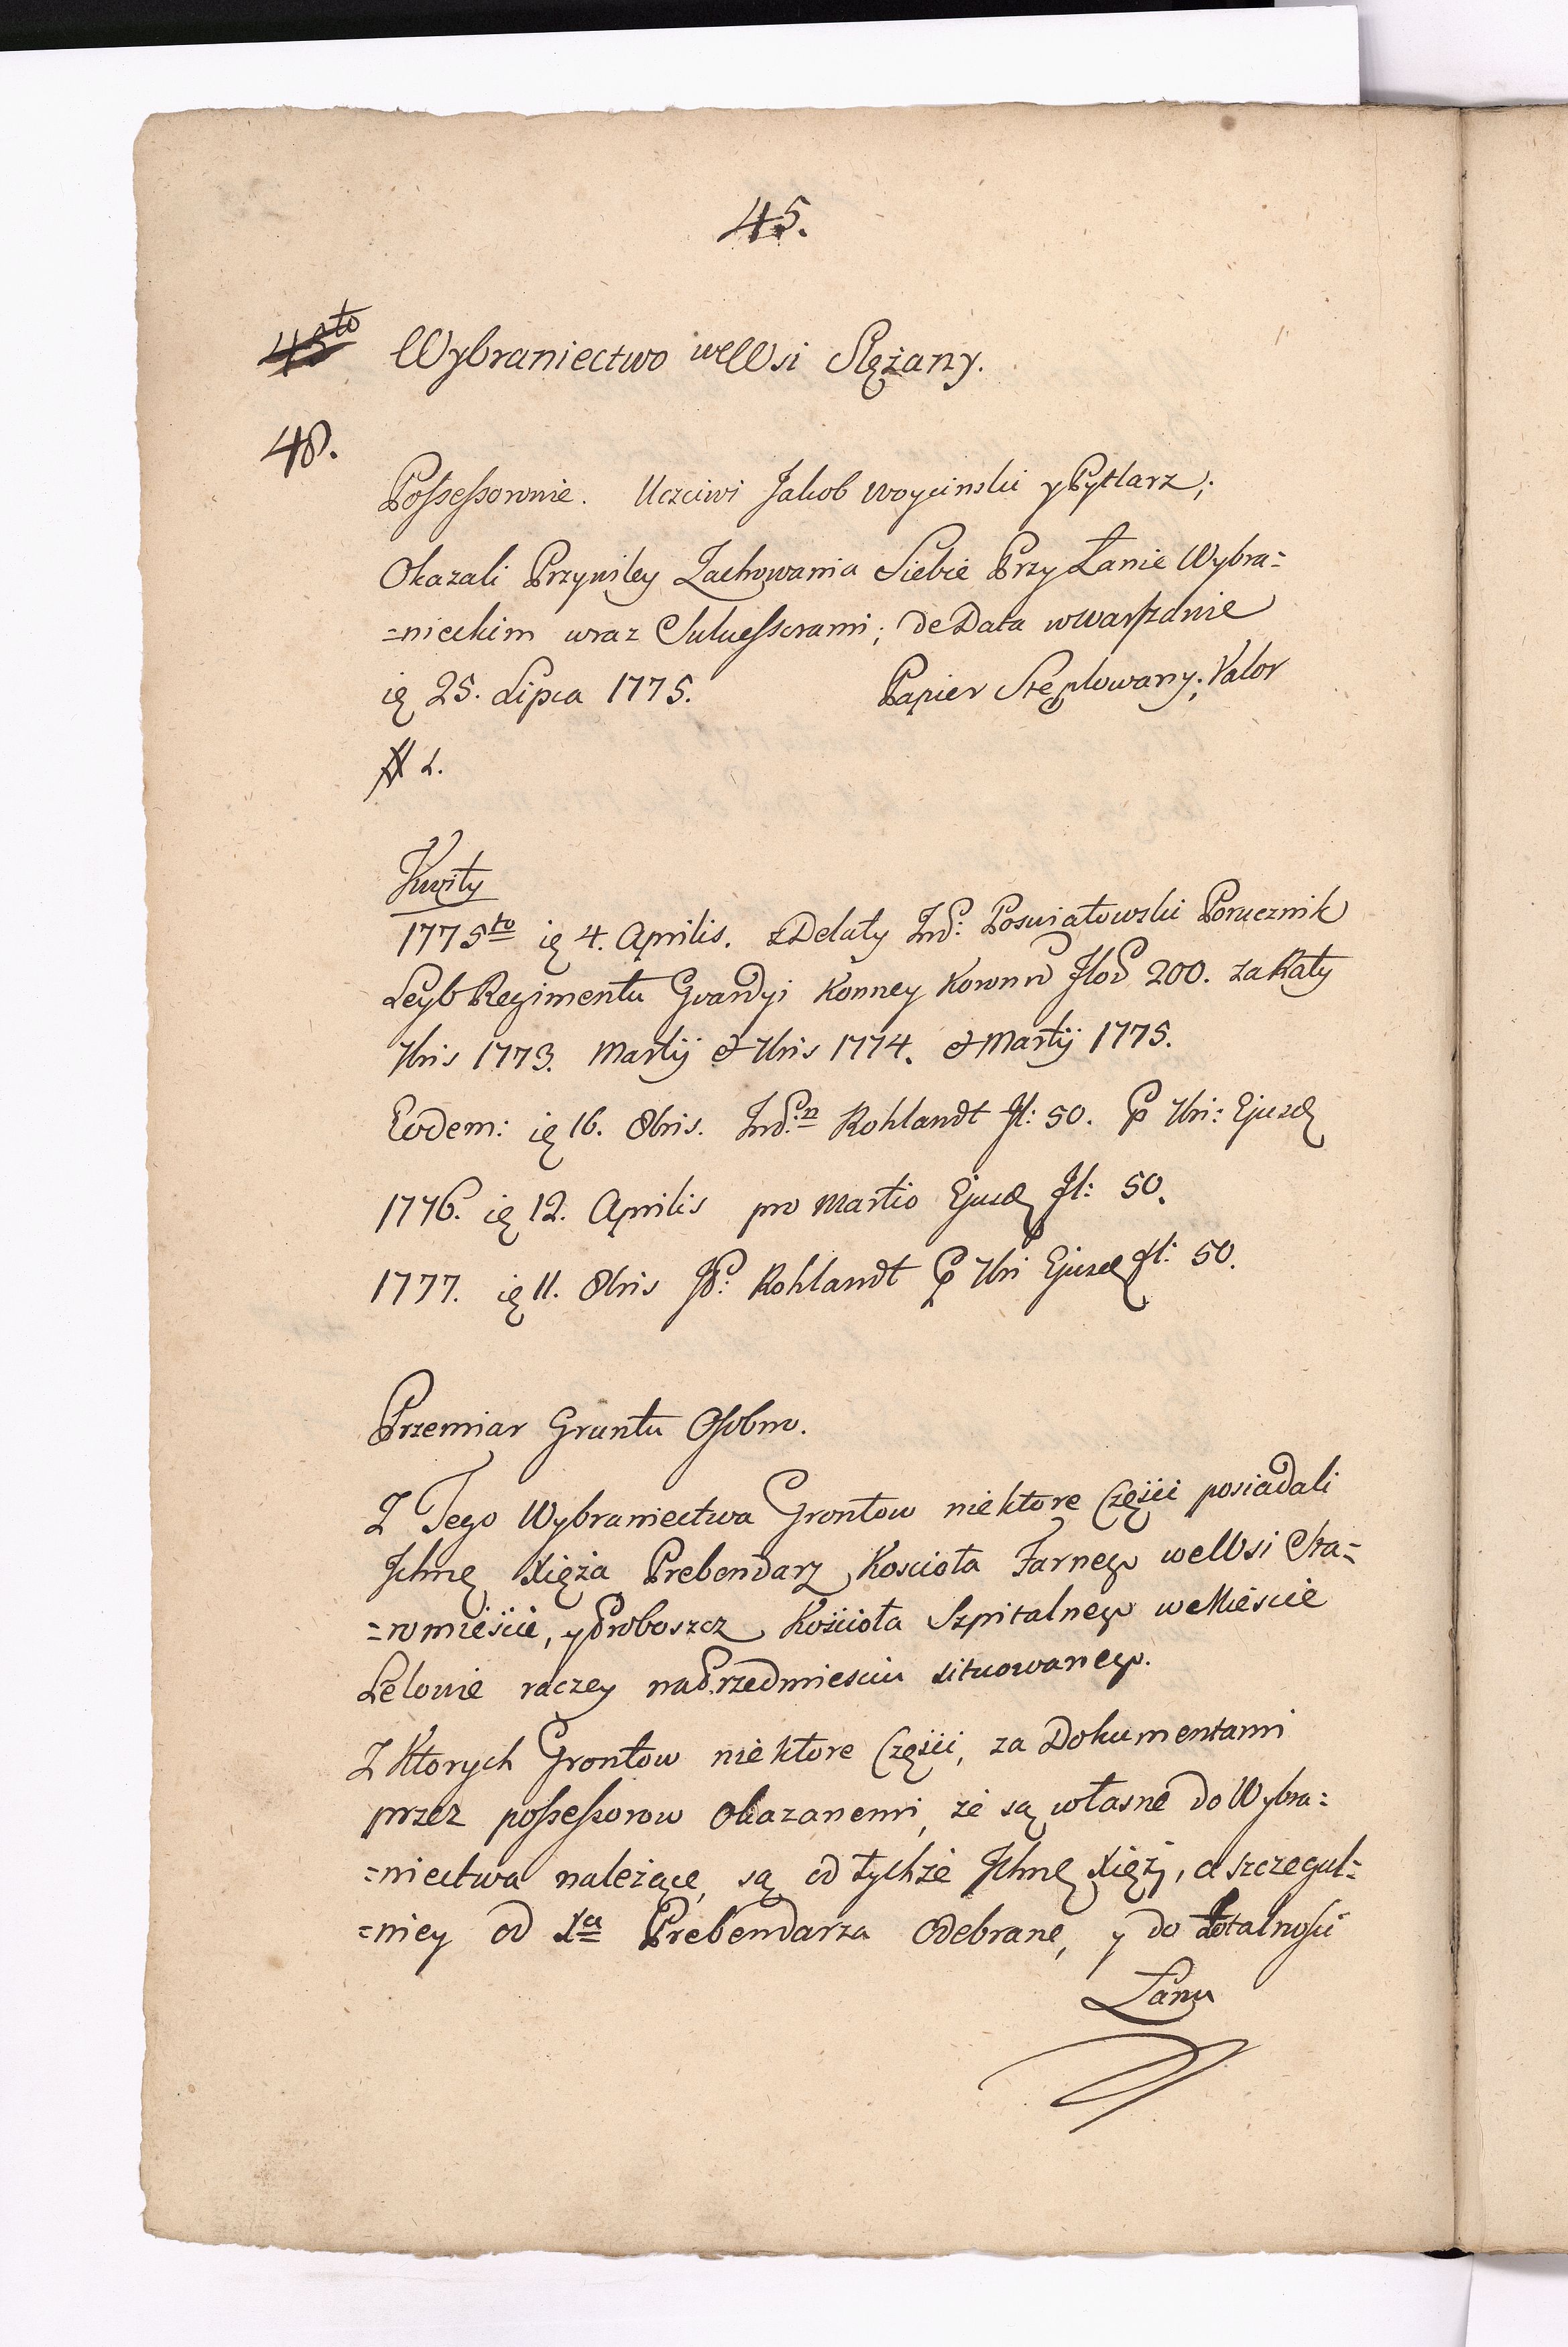 45.
45to Wybraniectwo weWsi Slężany.
48.
Possessorowie. Uczciwi Jakob Woycinski y Pytlarz;
Okazali Przywiley Zachowania Siebie Przy Łanie Wybra=
=nieckim wraz Sukcessorami; de Data w Warszawie
ię 25. Lipca 1775. Papier Stęplowany; Valor
1.
Kwity
1775to ię 4. Aprilis. z Delaty Poswiatowski Porucznik
Leyb Regimentu Gwardyi Konney Koronn Flor 200. za Raty
7bris 1773. Martij et 7bris 1774. et Martij 1775.
Eodem: ię 16. 8bris. Rohlandt fl: 50. p 7bri: Ejusd
1776. ię 12. Aprilis pro Martio Ejusd fl: 50.
1777. ię 11. 8bris JP: Rohlandt p 7bri Ejusd fl: 50.
Przemiar Gruntu Osobno.
Z Tego Wybraniectwa Grontow niektore Częsci posiadali
Ichmę Xięża Prebendarz Koscioła Farnego weWsi Sta=
=romieście, y Proboszcz Kościoła Szpitalnego w Mieście
Lelowie raczey na Przedmiesciu situowanego.
Z Ktorych Grontow niektore Częsci, za Dokumentami
przez possessorow okazanemi, że są własne do Wybra=
=niectwa należące, są od tychże Ichmę Xięży, a szczegul=
=niey od Xa Prebendarza odebrane, y do totalnosci
Łanu